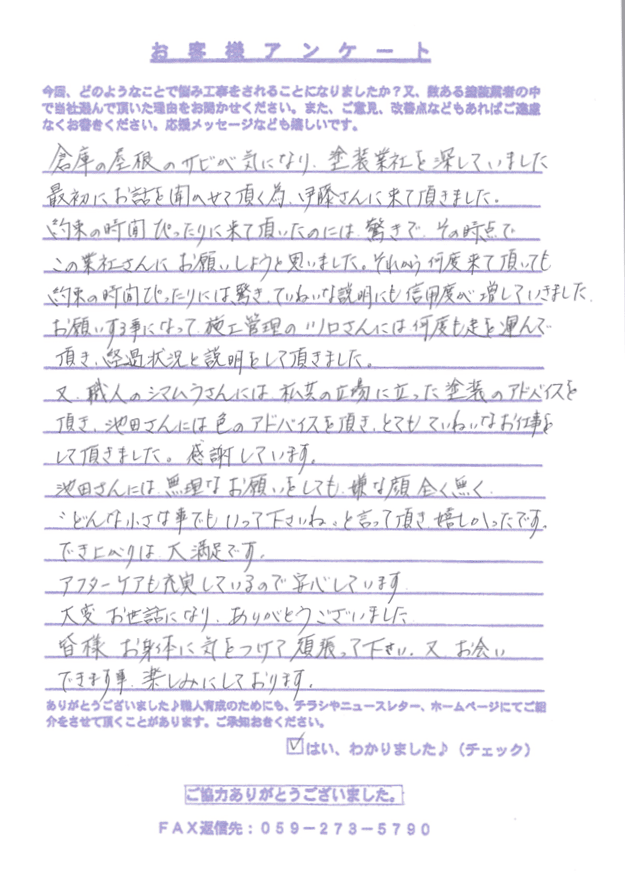 お客様アンケート
今回、どのようなことで悩み工事をされることになりましたか？又、数ある塗装業者の中
で当社選んで頂いた理由をお聞かせください。また、ご意見、改善点などもあればご遠慮
なくお書きください。応援メッセージなども嬉しいです。
倉庫の屋根のサビが気になり、塗装業社を探していました
最初にお話を聞かせて頂く為、伊藤さんに来て頂きました。
約束の時間ぴったりに来て頂いたのには、驚きで、その時点で
この業社さんにお願いしようと思いました。それから何度来て頂いても
約束の時間ぴったりには驚き、ていねいな説明にも信用度が増していきました。
お願いする事になって、施工管理の川口さんには何度も足を運んで
頂き、経過状況と説明をして頂きました。
又、職人のシマムラさんには、私共の立場に立った塗装のアドバイスを
頂き、池田さんには色のアドバイスを頂き、とてもていねいなお仕事を
して頂きました。感謝しています。
池田さんには、無理なお願いをしても、嫌な顔全く無く、
"どんな小さな事でもいって下さいね。と言って頂き嬉しかったです。
でき上がりは、大満足です。
アフターケアも充実しているので安心しています
大変お世話になり、ありがとうございました
皆様お身体に気をつけて頑張って下さい。又、お会い
できます事、楽しみにしております。
ありがとうございました♪職人育成のためにも、チラシやニュースレター、ホームページにてご紹
介をさせて頂くことがあります。ご承知おきください。
☑はい、わかりました♪（チェック）
ご協力ありがとうございました。
FAX返信先：059－273－5790